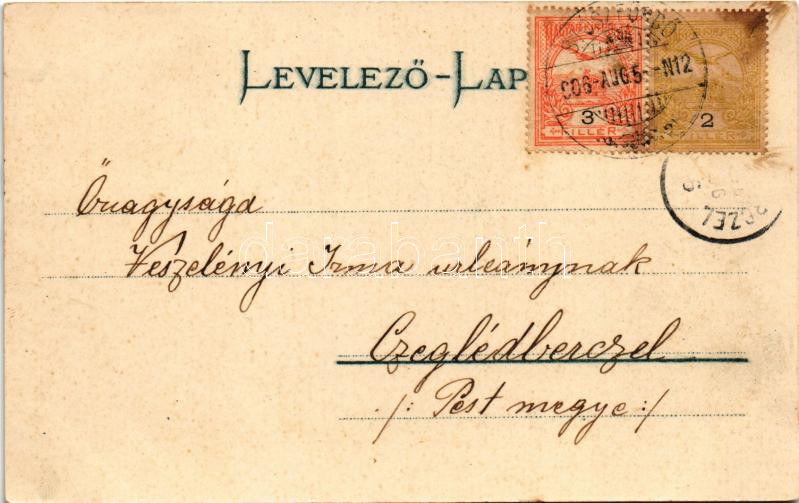 LEVELEZŐ-LAP
MAGYAR
3
FILLÉR
2
FILLÉR
906-AUG.5-N12
Őnagysága
Veszelényi Irma urleánynak
Czeglédberczel
/: Pest megye :/
darabanth